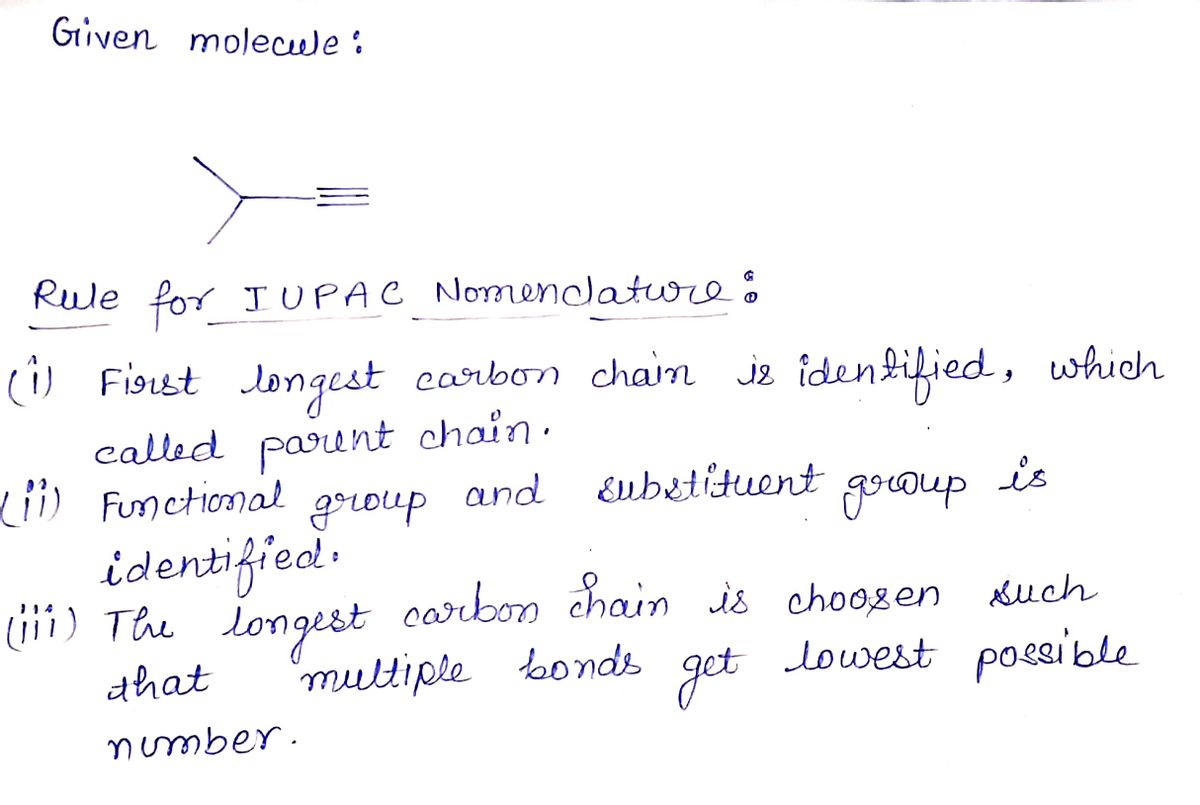 Given molecule :
Rule for IUPAC Nomenclature :
(i) First longest carbon chain is identified, which
called parent chain.
(ii) Functional group and substituent group is
identified.
(iii) The longest carbon chain is choosen such
that multiple bonds get lowest possible
number.